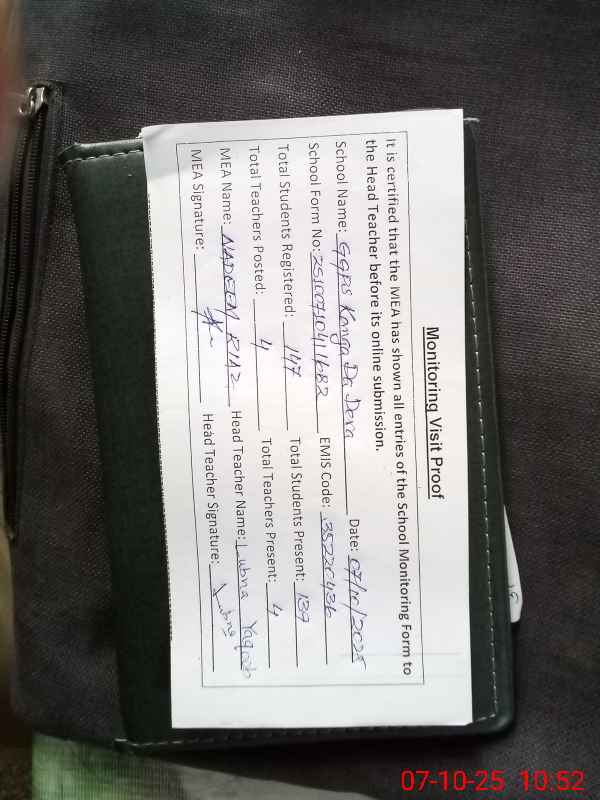 Monitoring Visit Proof
It is certified that the MEA has shown all entries of the School Monitoring Form to
the Head Teacher before its online submission.
School Name: GGPS Konga Da Dera Date: 07/10/2025
School Form No: 2510071041682 EMIS Code: 35220436
Total Students Registered: 147 Total Students Present: 139
Total Teachers Posted: 4 Total Teachers Present: 4
MEA Name: NADEEM RIAZ Head Teacher Name: Lubna Yaqoob
MEA Signature: Head Teacher Signature: Lubna
07-10-25 10:52